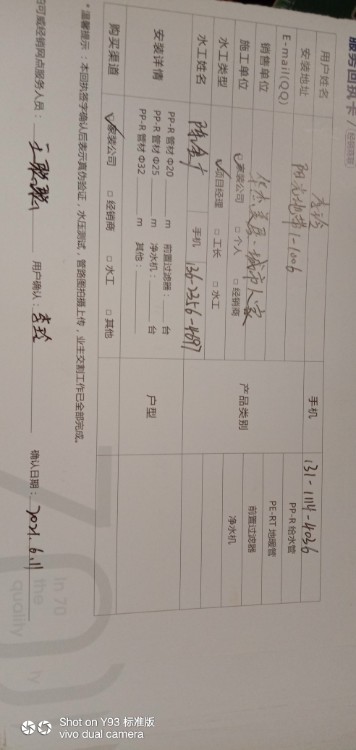 服务回执卡
用户姓名 李玲 手机 131-1114-4036
安装地址 阳光地带1-1006 PP-R 给水管
E-mail(QQ) PE-RT 地暖管
销售单位 产品类别 前置过滤器
施工单位 ☑家装公司 □个人 □经销商 净水机
水工类型 ☑项目经理 □工长 □水工
水工姓名 手机 136-2356-4897
安装详情 PP-R 管材 Φ20 m 前置过滤器: 台 户型
PP-R 管材 Φ25 m 净水机: 台
PP-R 管材 Φ32 m 其他:
购买渠道 ☑家装公司 □经销商 □水工 □其他
*温馨提示:本回执签字确认后表示真伪验证,水压测试,管路图拍摄上传,业主交割工作已全部完成。
伯可威经销网点服务人员: 用户确认: 李玲 确认日期: 2021.6.11
In 70
the
quality
Shot on Y93 标准版
vivo dual camera